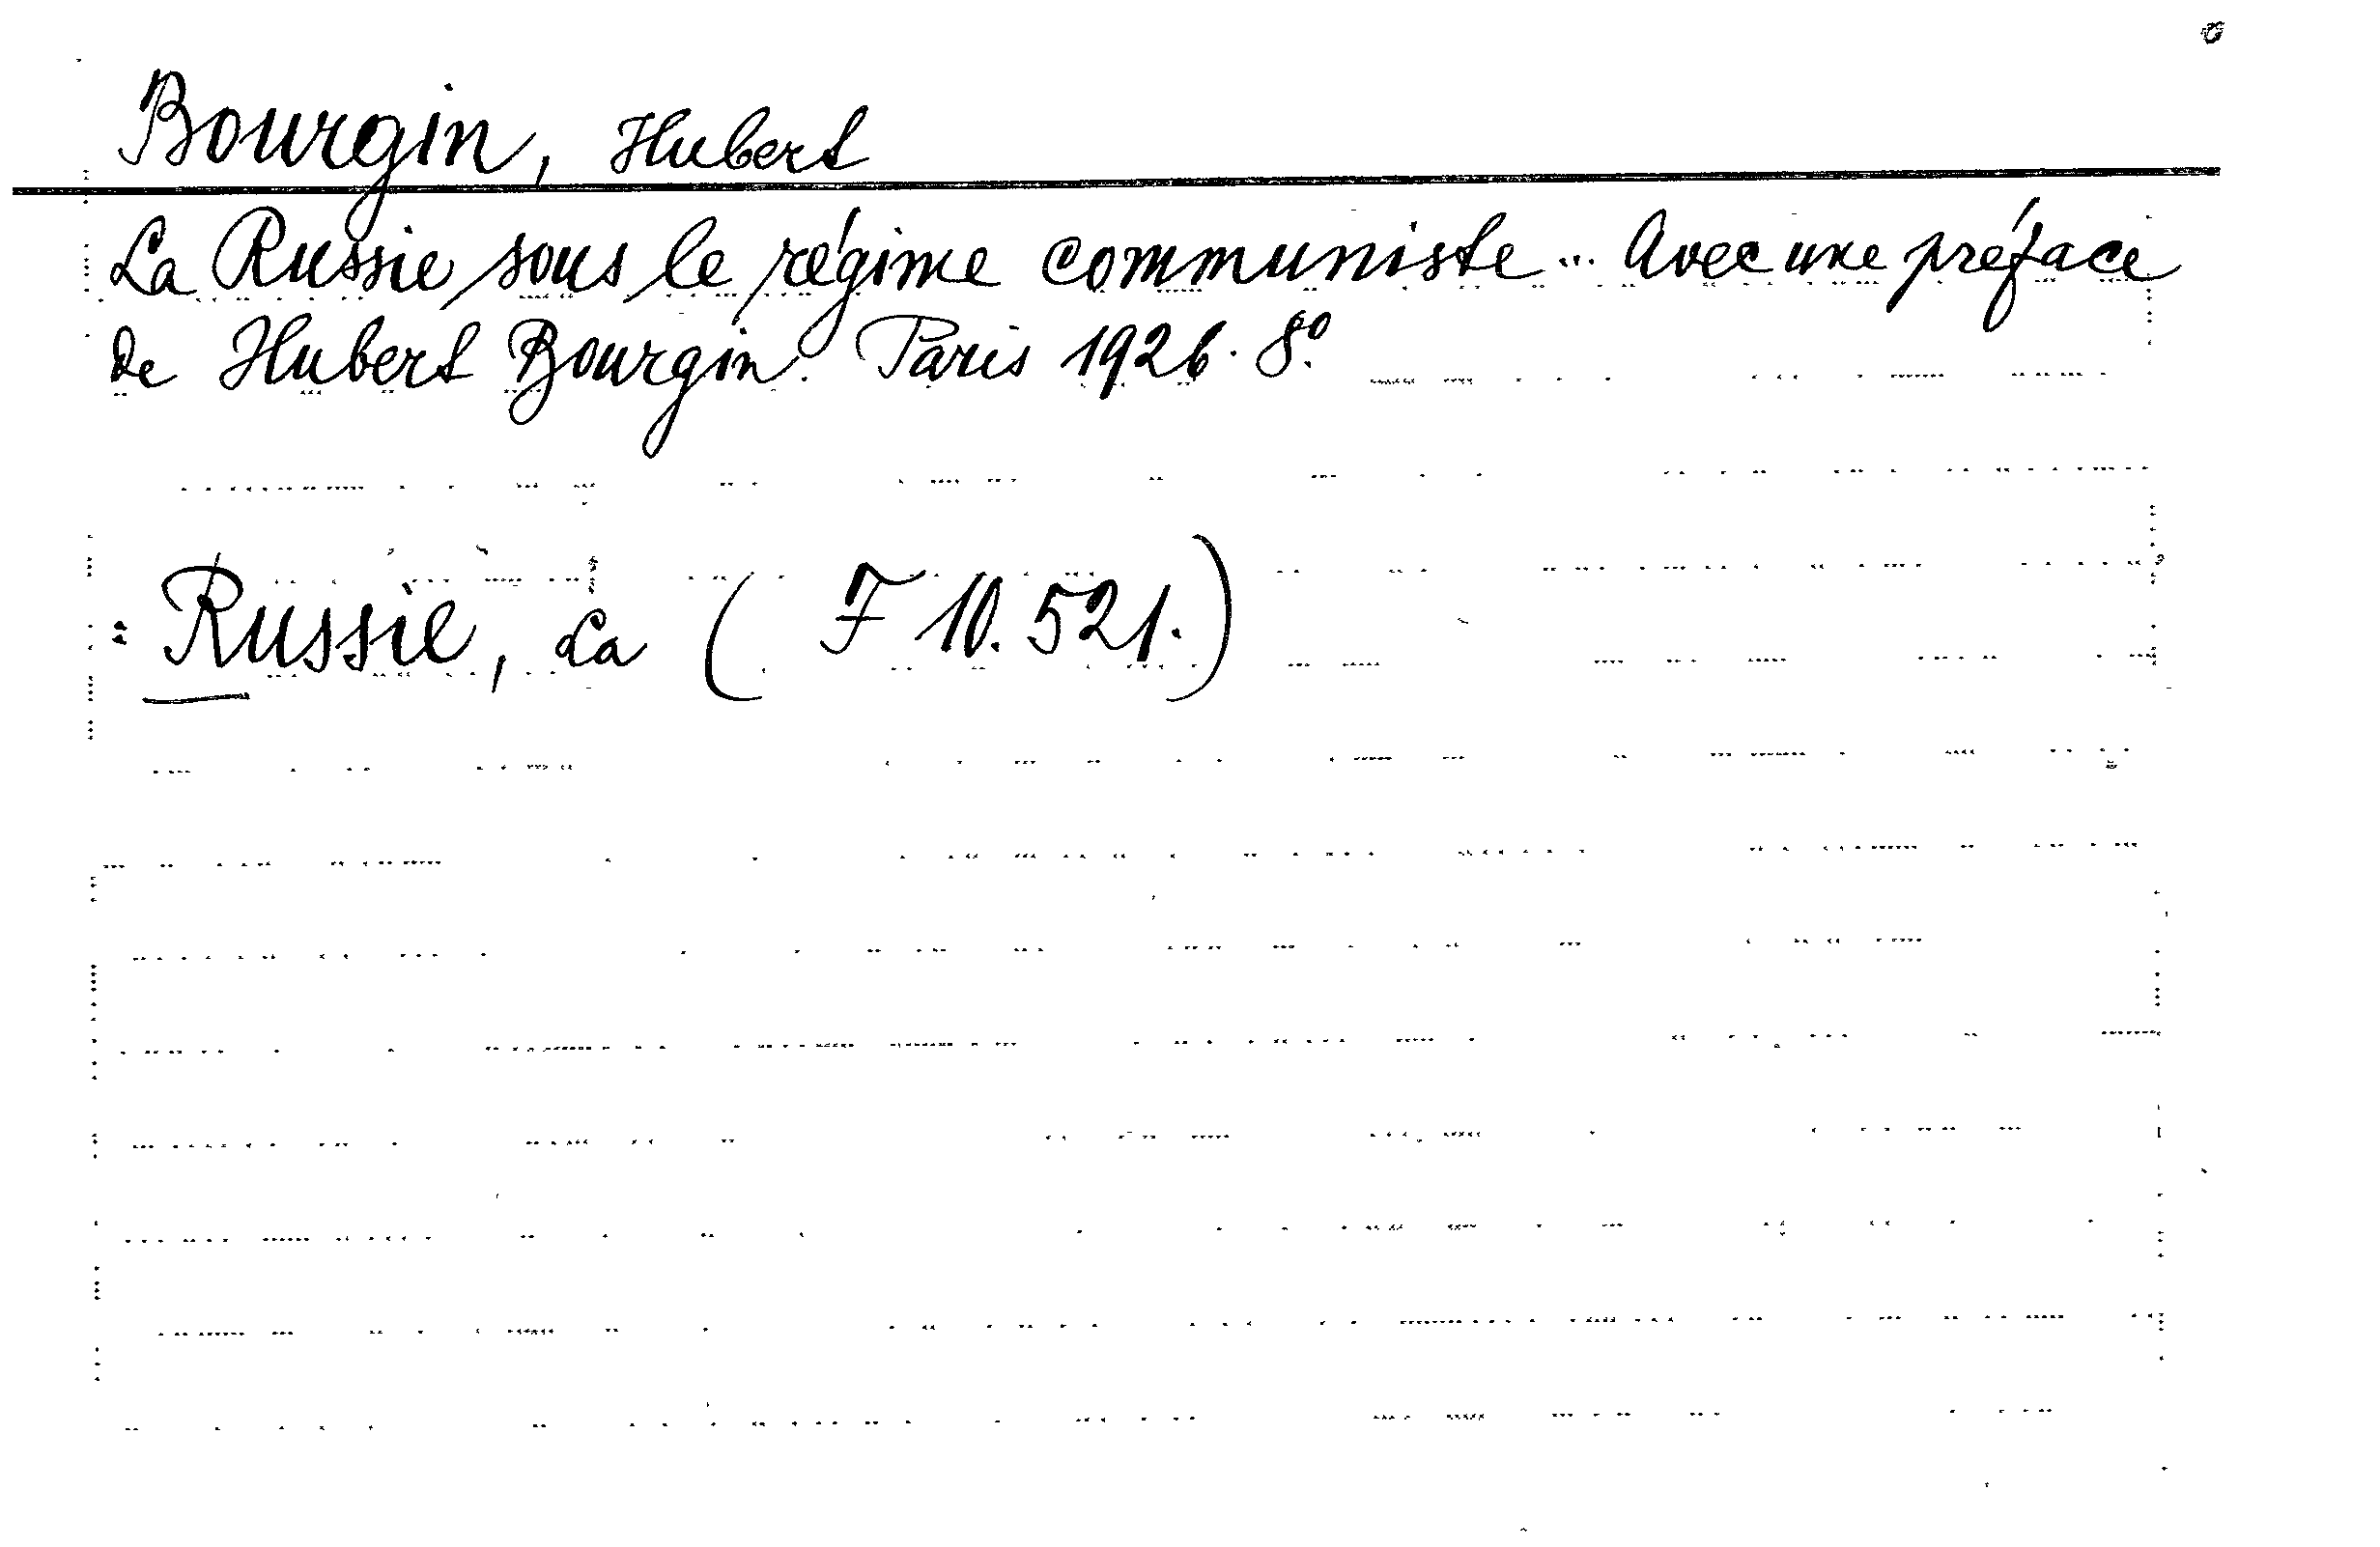 Bourgin, Hubert
La Russie sous le régime communiste... Avec une préface
de Hubert Bourgin. Paris 1926. 8º.
: Russie, La ( F 10.521.)